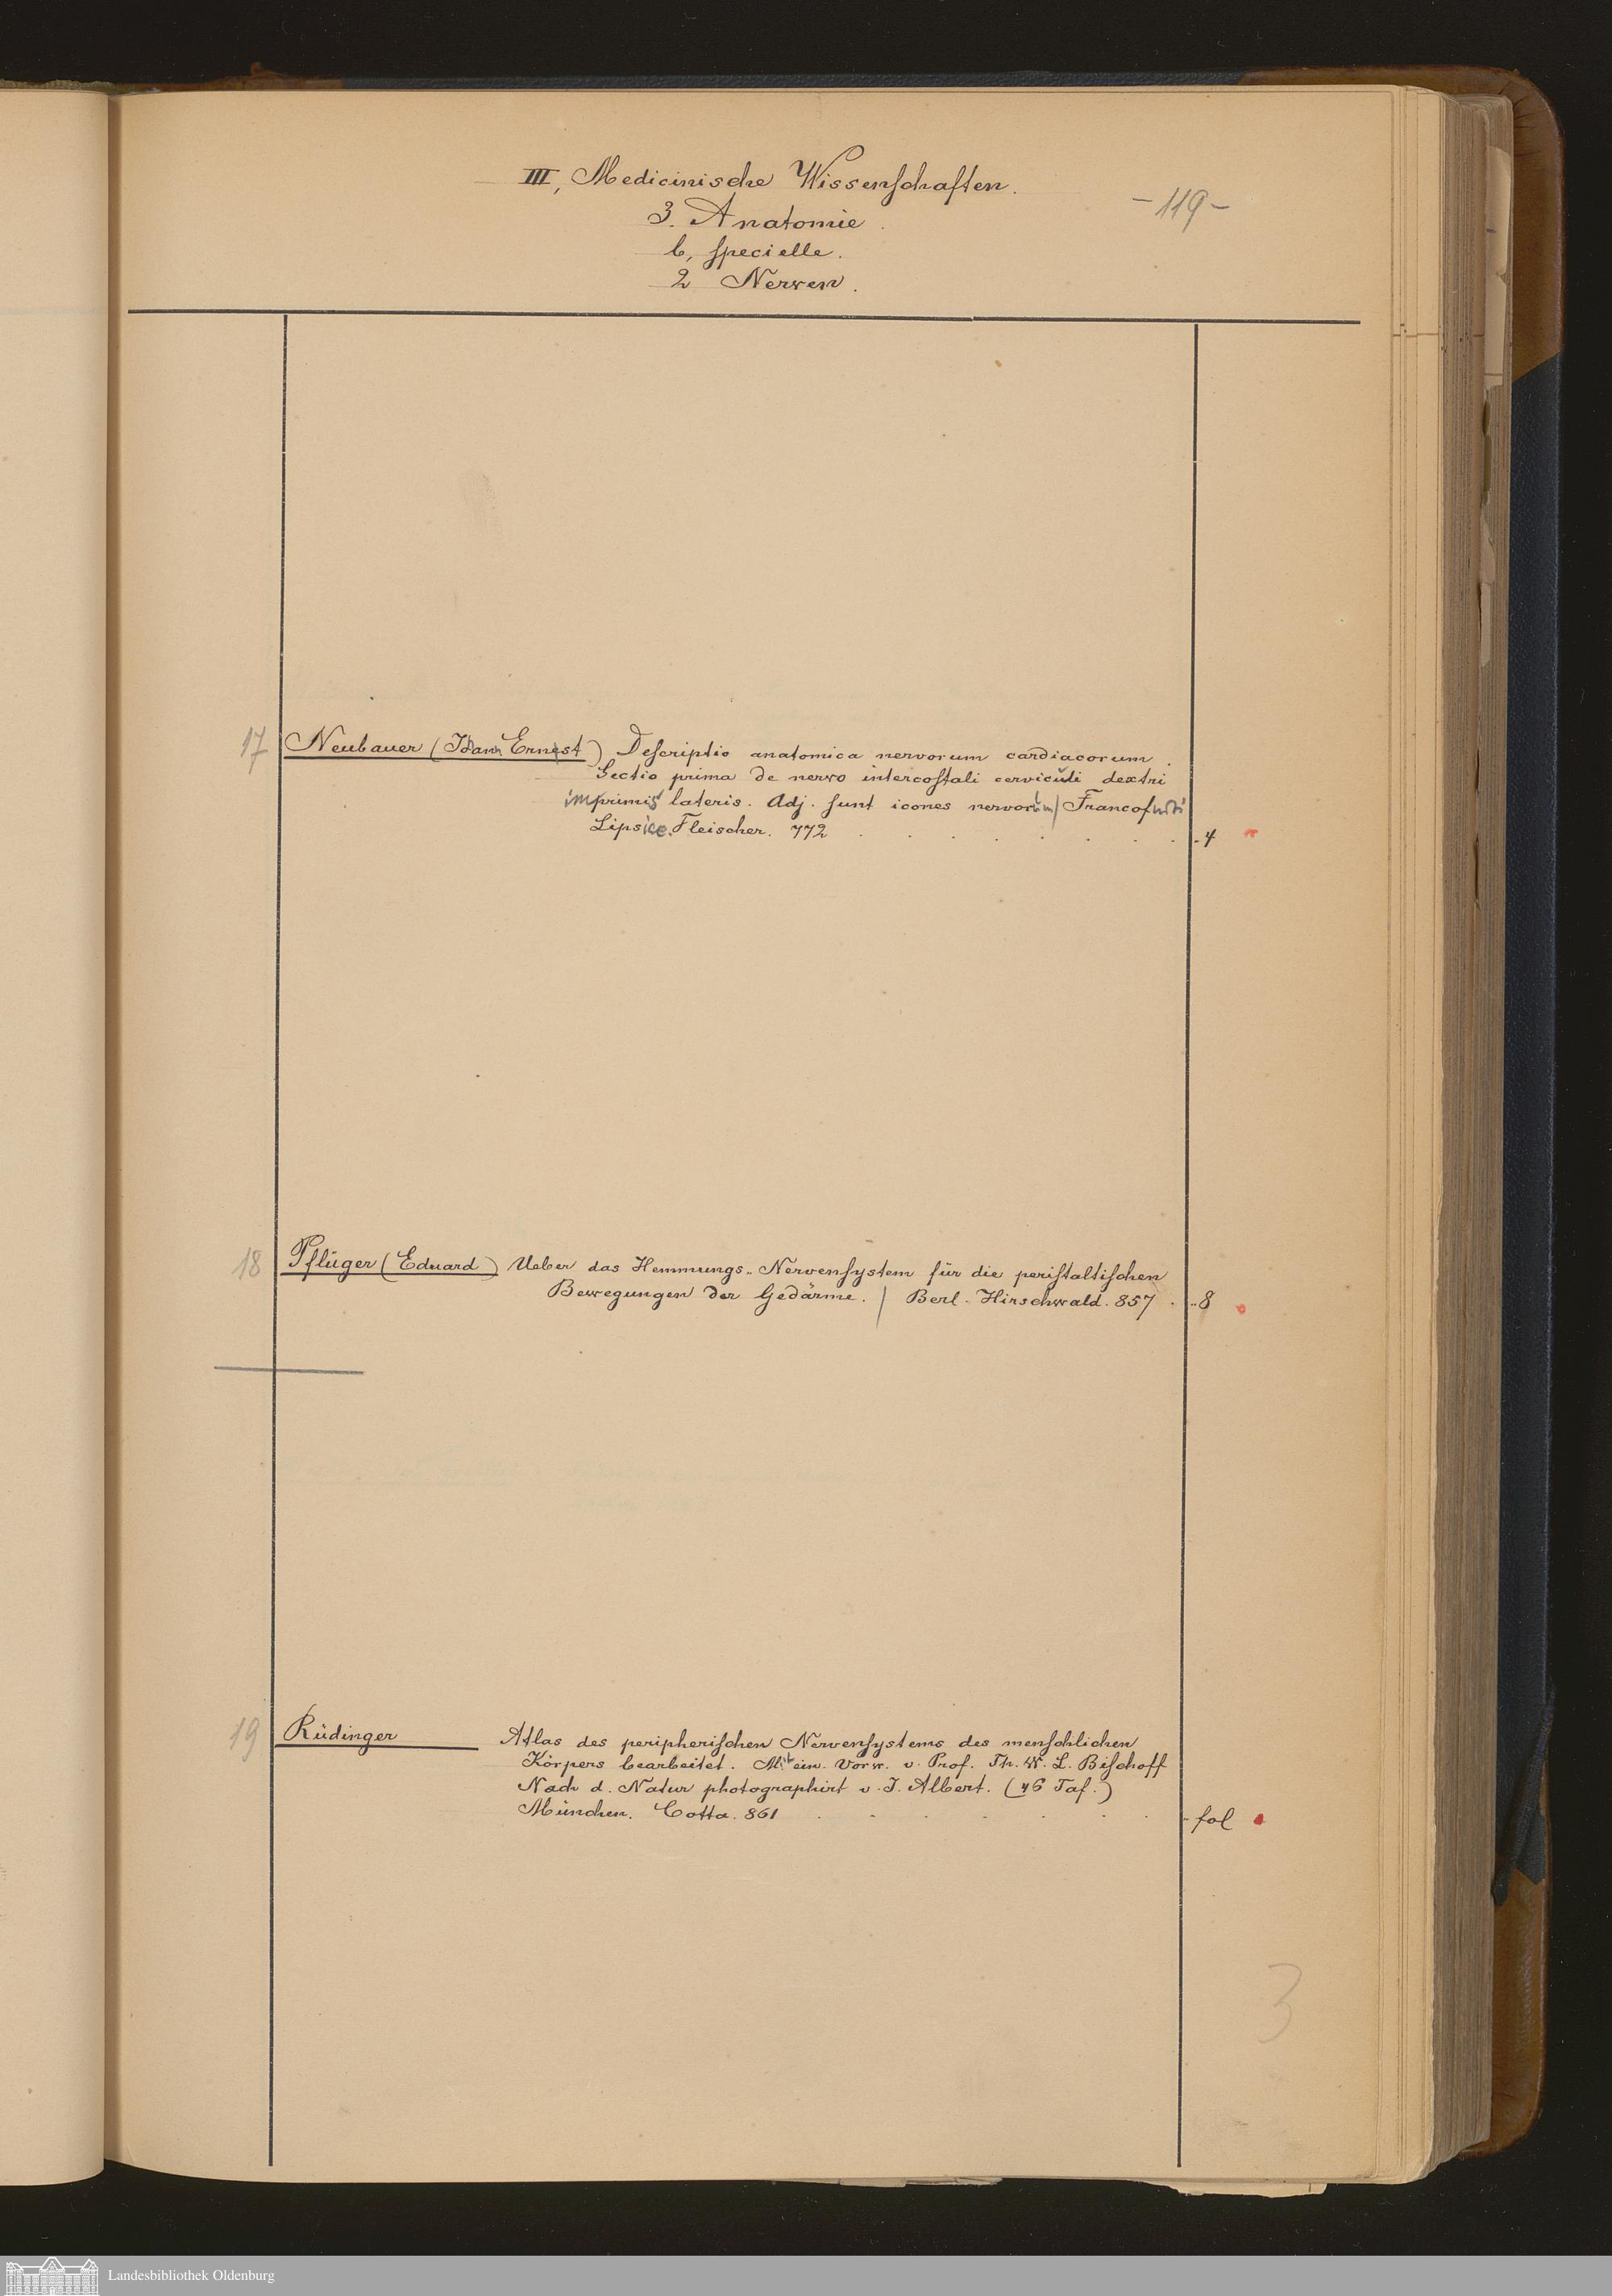 III, Medicinische Wissenschaften.
-119-
3. Anatomie.
b, specielle.
2 Nerven.
17 Neubauer (Joann Ernest) Descriptio anatomica nervorum cardiacorum.
Sectio prima de nervo intercostali cervicali dextri
imprimis lateris. Adj. sunt icones nervorum/ Francofurti
Lipsiae. Fleischer. 772 . . . . . . . 4
18 Pflüger (Eduard) Ueber das Hemmungs-Nervensystem für die peristaltischen
Bewegungen der Gedärme. / Berl. Hirschwald. 857 . 8
19 Rüdinger Atlas des peripherischen Nervensystems des menschlichen
Körpers bearbeitet. Mit ein. Vorw. v. Prof. Th. W. L. Bischoff
Nach d. Natur photographirt v. J. Albert. (46 Taf.)
München. Cotta. 861 . . . . . . fol
3
Landesbibliothek Oldenburg